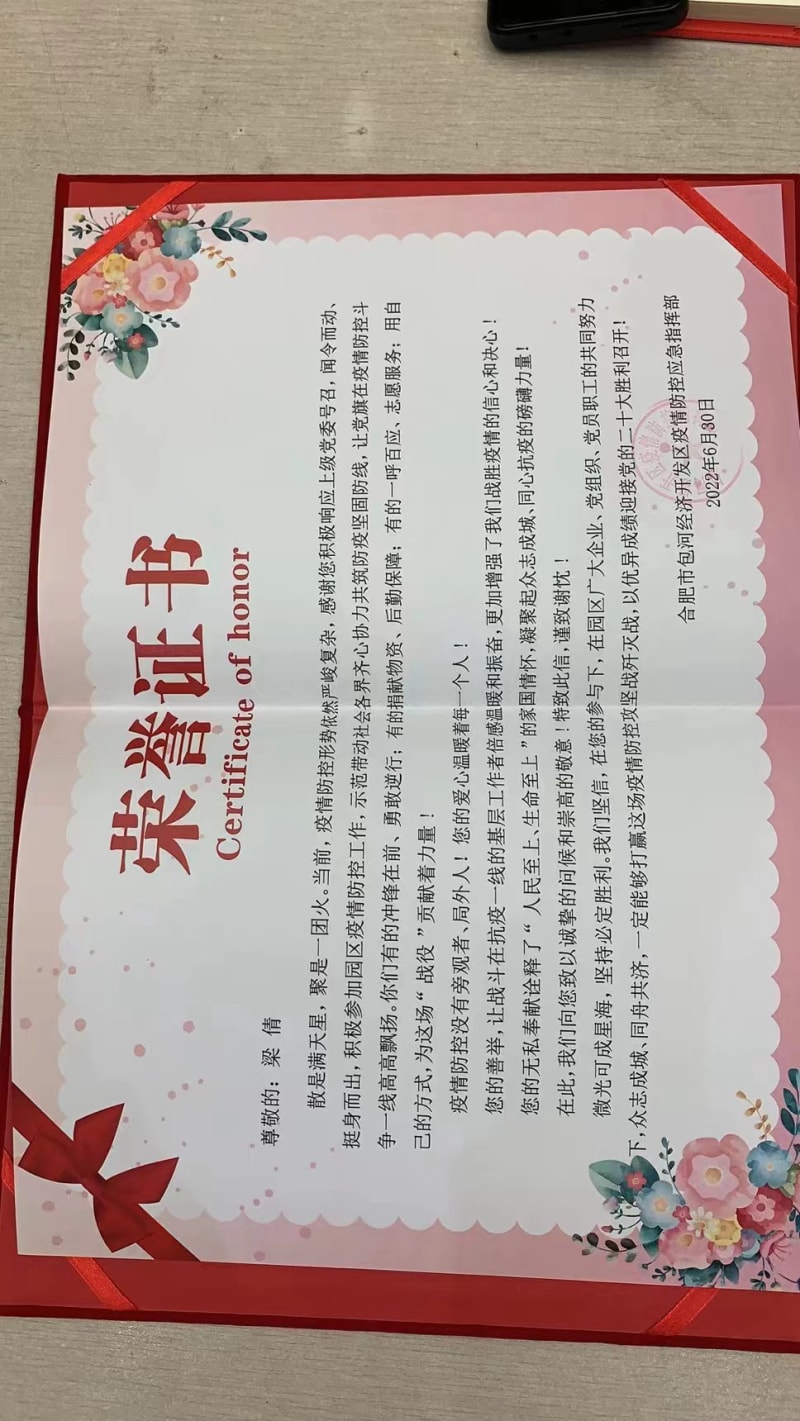 荣誉证书
Certificate of honor
尊敬的：梁 倩
散是满天星，聚是一团火。当前，疫情防控形势依然严峻复杂，感谢您积极响应上级党委号召，闻令而动、
挺身而出，积极参加园区疫情防控工作，示范带动社会各界齐心协力共筑防疫坚固防线，让党旗在疫情防控斗
争一线高高飘扬。你们有的冲锋在前、勇敢逆行；有的捐献物资、后勤保障；有的一呼百应、志愿服务；用自
己的方式，为这场“战役”贡献着力量！
疫情防控没有旁观者、局外人！您的爱心温暖着每一个人！
您的善举，让战斗在抗疫一线的基层工作者倍感温暖和振奋，更加增强了我们战胜疫情的信心和决心！
您的无私奉献诠释了“人民至上、生命至上”的家国情怀，凝聚起众志成城、同心抗疫的磅礴力量！
在此，我们向您致以诚挚的问候和崇高的敬意！特致此信，谨致谢忱！
微光可成星海，坚持必定胜利。我们坚信，在您的参与下，在园区广大企业、党组织、党员职工的共同努力
下，众志成城、同舟共济，一定能够打赢这场疫情防控攻坚战歼灭战，以优异成绩迎接党的二十大胜利召开！
合肥市包河经济开发区疫情防控应急指挥部
2022年6月30日